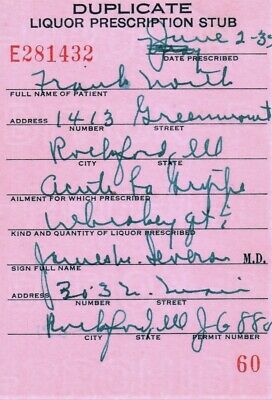 DUPLICATE
LIQUOR PRESCRIPTION STUB
E281432
June 2-3
DATE PRESCRIBED
Frank North
FULL NAME OF PATIENT
ADDRESS 1413 Greenmount
NUMBER STREET
Rockford, Ill
CITY STATE
Acute La Grippe
AILMENT FOR WHICH PRESCRIBED
Whiskey
KIND AND QUANTITY OF LIQUOR PRESCRIBED
James M. M.D.
SIGN FULL NAME
ADDRESS 303 N. Main
NUMBER STREET
Rockford, Ill
CITY STATE PERMIT NUMBER
60